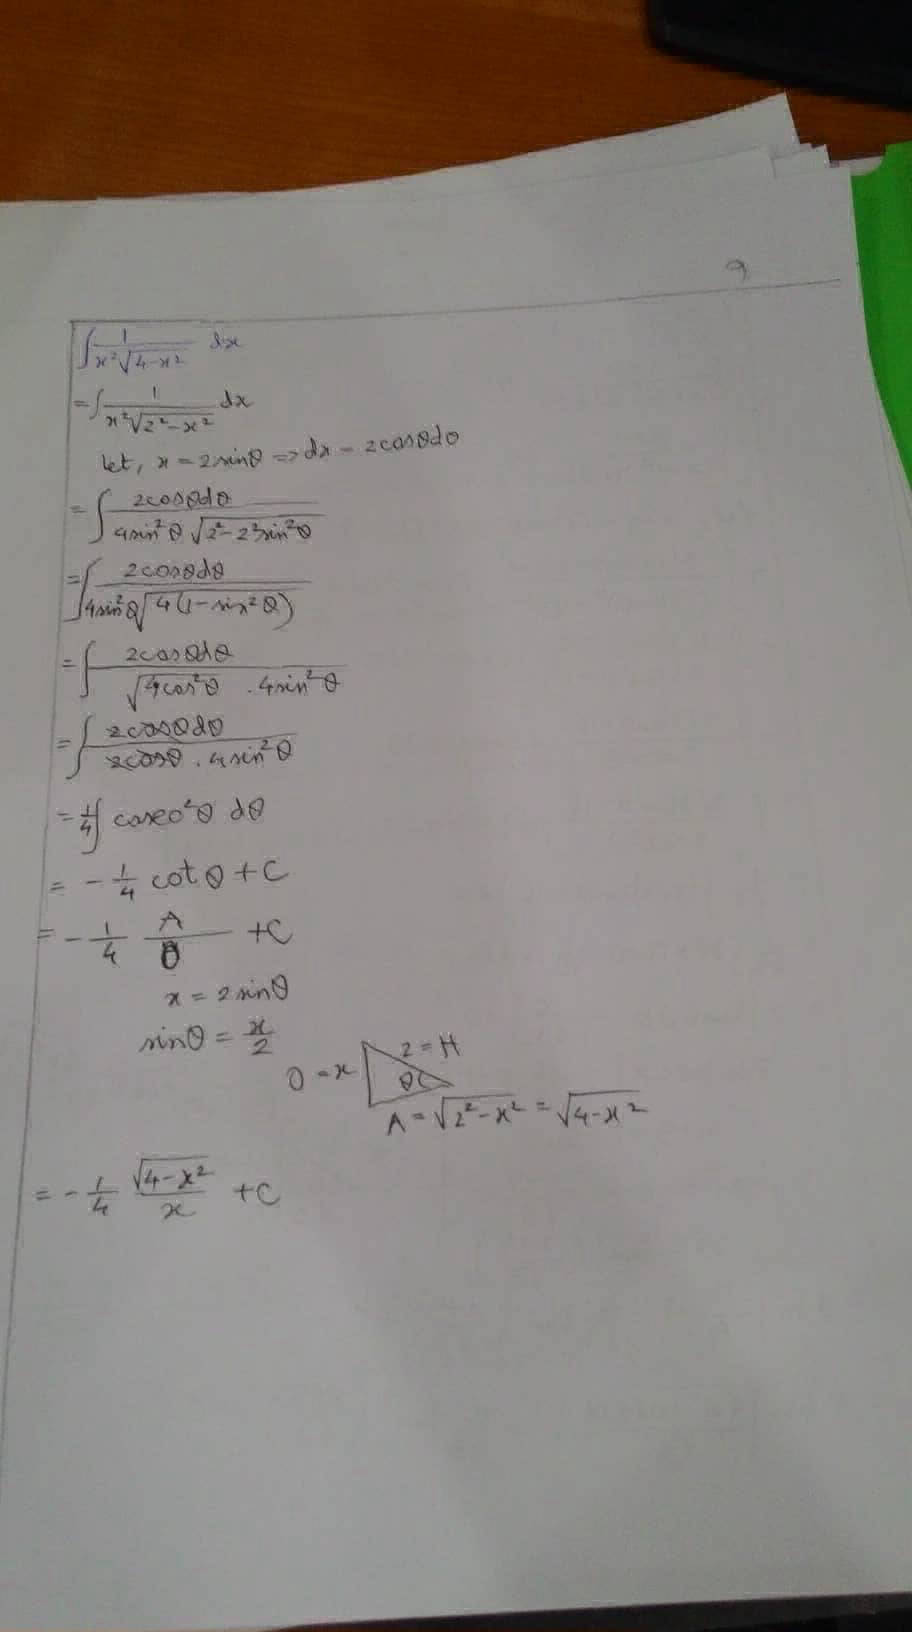 9
∫ 1/(x²√(4-x²)) dx
= ∫ 1/(x²√(2²-x²)) dx
let, x = 2sinθ => dx = 2cosθdθ
= ∫ 2cosθdθ / (4sin²θ √(2²-2²sin²θ))
= ∫ 2cosθdθ / (4sin²θ √(4(1-sin²θ)))
= ∫ 2cosθdθ / (√(4cos²θ) . 4sin²θ)
= ∫ 2cosθdθ / (2cosθ . 4sin²θ)
= 1/4 ∫ cosec²θ dθ
= - 1/4 cotθ + C
= - 1/4 A/O + C
x = 2sinθ
sinθ = x/2
2 = H
O = x θ
A = √(2²-x²) = √(4-x²)
= - 1/4 √(4-x²)/x + C